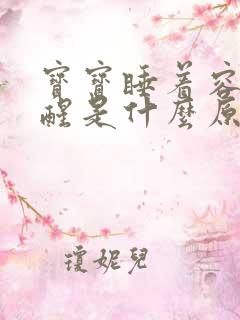 寶寶睡着容
醒是什麼原
瓊妮兒